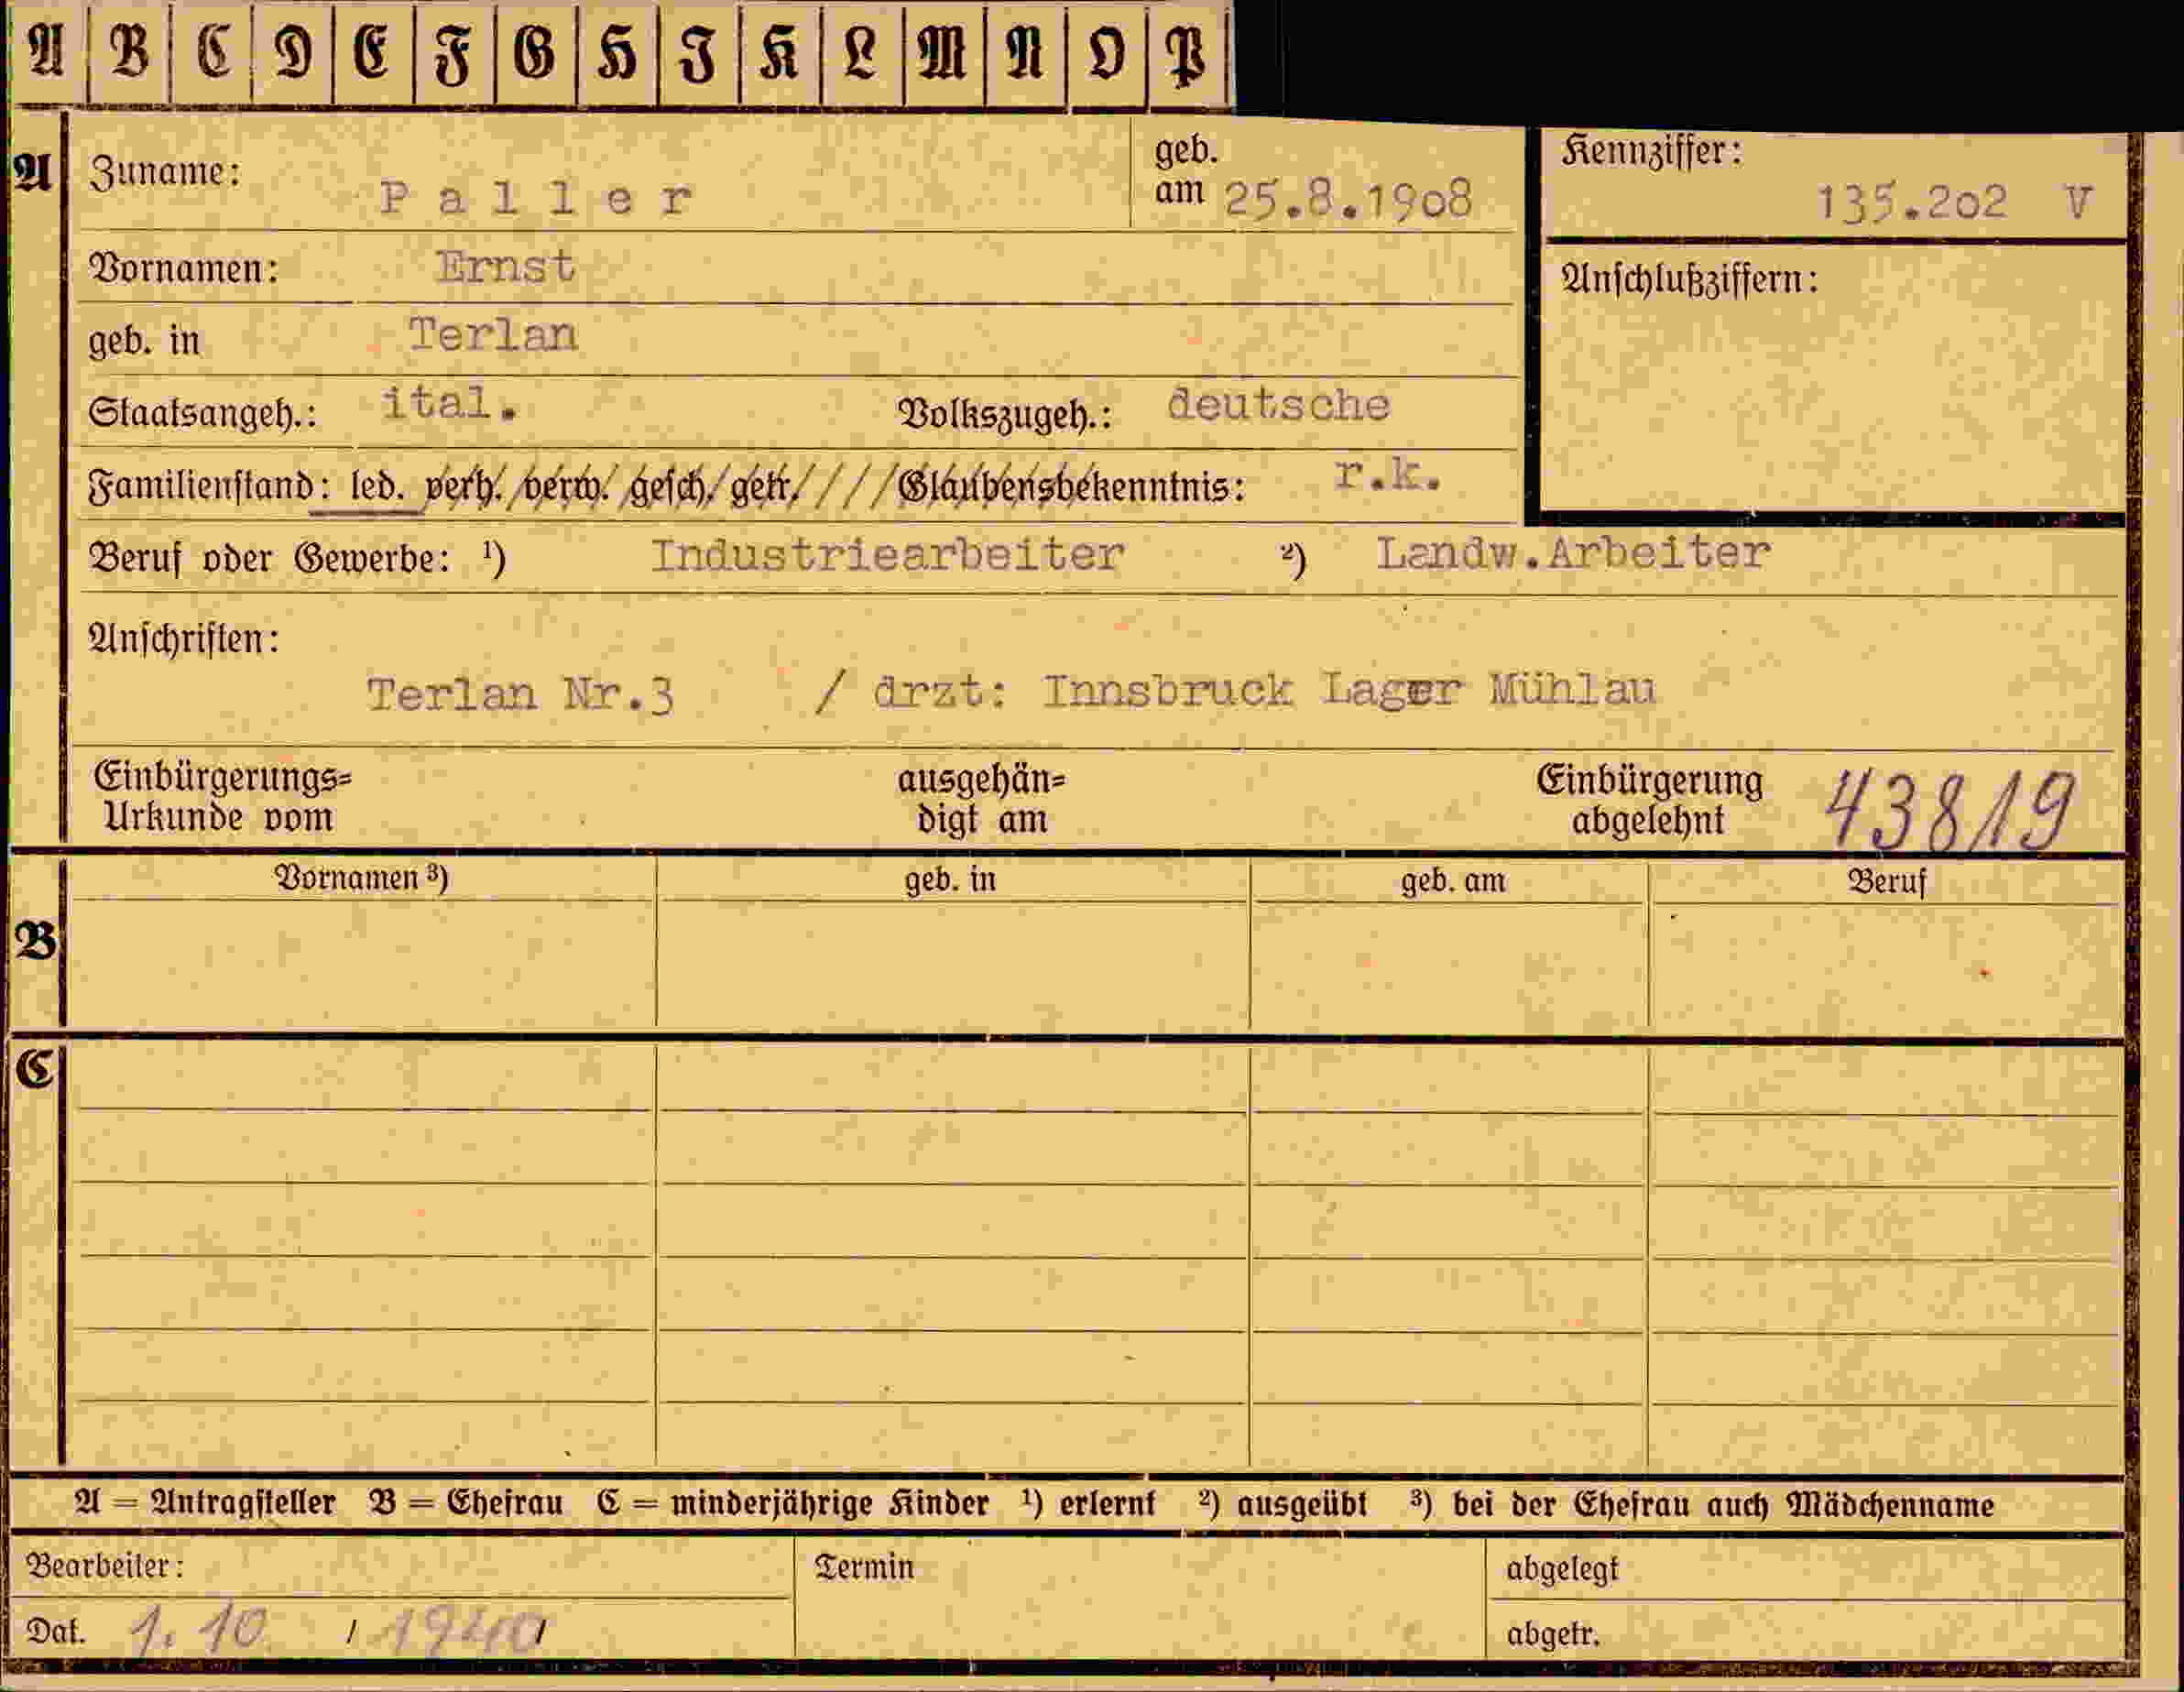 A B C D E F G H I K L M N O P
A Zuname: Paller geb. am 25.8.1908 Kennziffer: 135.202 V
Vornamen: Ernst Anschlußziffern:
geb. in Terlan
Staatsangeh.: ital. Volkszugeh.: deutsche
Familienstand: led. verh. verw. gesch. getr. //// Glaubensbekenntnis: r.k.
Beruf oder Gewerbe: ¹) Industriearbeiter ²) Landw.Arbeiter
Anschriften:
Terlan Nr.3 / drzt: Innsbruck Lager Mühlau
Einbürgerungs= ausgehän= Einbürgerung 43819
Urkunde vom digt am abgelehnt
Vornamen ³) geb. in geb. am Beruf
B
C
A = Antragsteller B = Ehefrau C = minderjährige Kinder ¹) erlernt ²) ausgeübt ³) bei der Ehefrau auch Mädchenname
Bearbeiter: Termin abgelegt
Dat. 1. 10 / 1940/ abgetr.